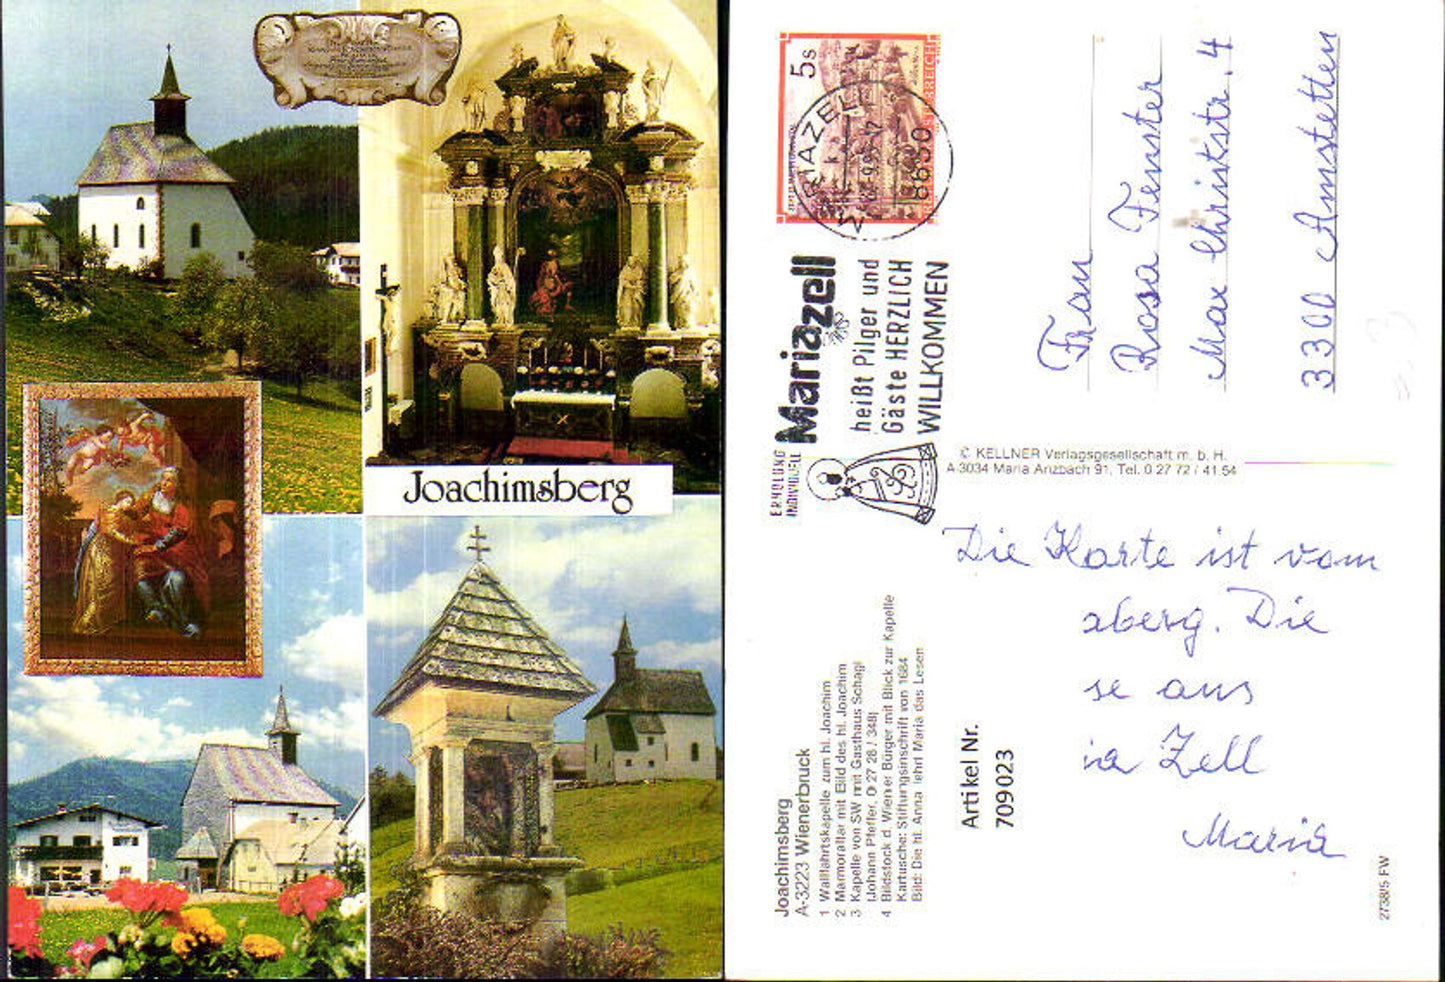 Joachimsberg
5 s
8630
Mariazell
heißt Pilger und
Gäste HERZLICH
WILLKOMMEN
ERHOLUNG
INDIVIDUELL
Frau
Rosa Fenster
Max Christstr. 4
3300 Amstetten
© KELLNER Verlagsgesellschaft m. b. H.
A-3034 Maria Anzbach 91, Tel. 0 27 72 / 41 54
Die Karte ist vom
xberg. Die
se aus
ia Zell
Maria
Artikel Nr.
709023
Joachimsberg
A-3223 Wienerbruck
1 Wallfahrtskapelle zum hl. Joachim
2 Marmoraltar mit Bild des hl. Joachim
3 Kapelle von SW mit Gasthaus Schagl
(Johann Pfeffer, 0 27 28 / 348)
4 Bildstock d. Wiener Bürger mit Blick zur Kapelle
Kartusche: Stiftungsinschrift von 1684
Bild: Die hl. Anna lehrt Maria das Lesen
2738/5 FW